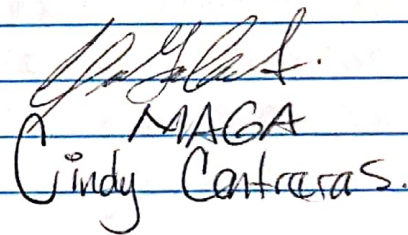 MAGA
Cindy Contreras.